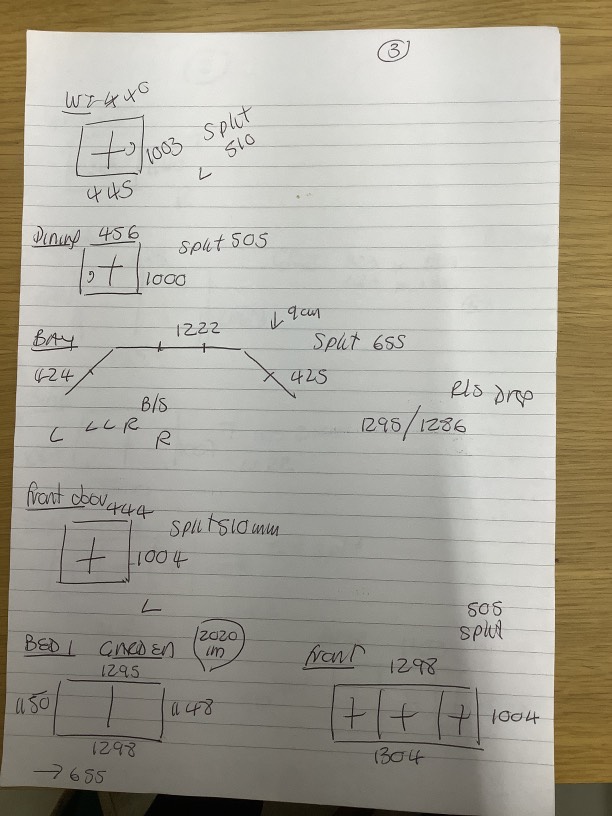 3
WC 446
1003
445
Split
510
L
Dining 456
Split 505
1000
BAY
1222
↓ 9cm
Split 655
424
425
B/S
L LL R
R
R/S Drop
1295/1286
front door 444
Split 510mm
1004
L
BED 1 GARDEN
2020
1295
1150
1148
1298
→ 655
505
split
front
1298
1004
1304